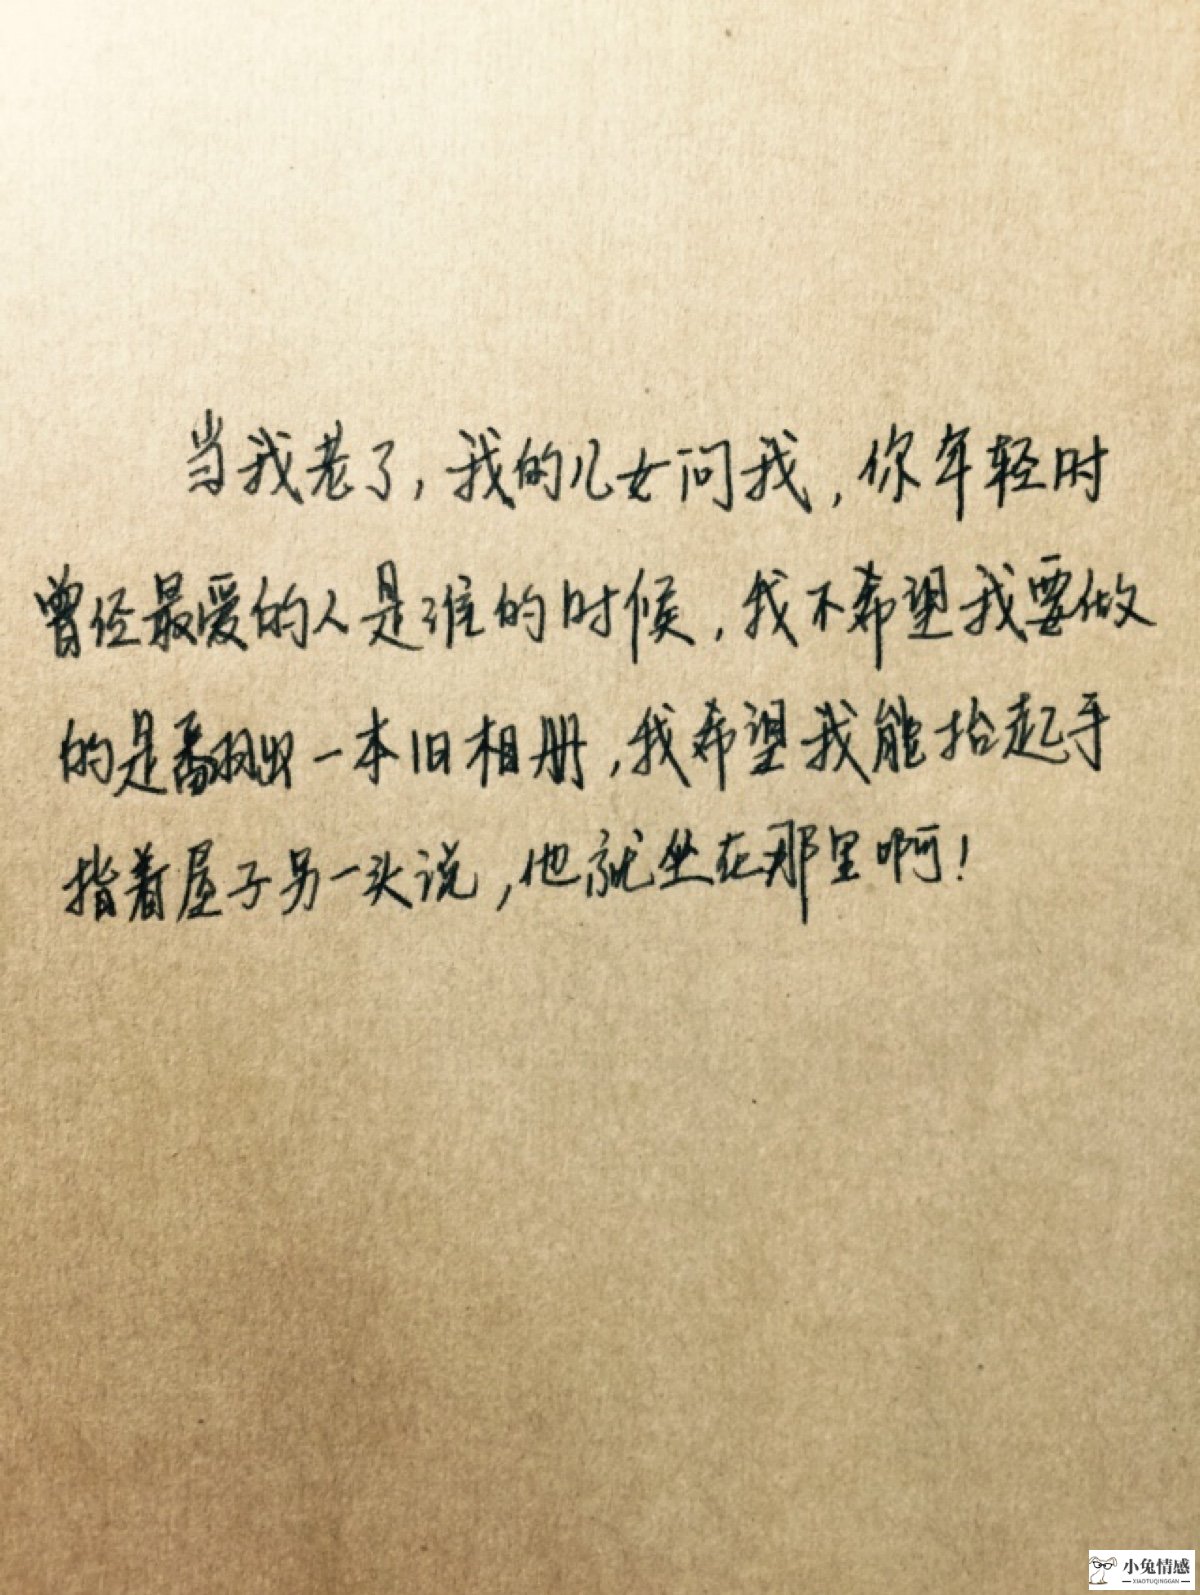 当我老了，我的儿女问我，你年轻时
曾经最爱的人是谁的时候，我不希望我要做
的是翻出一本旧相册，我希望我能抬起手
指着屋子另一头说，他就坐在那里啊！
小兔情感
XIAOTUQINGGAN